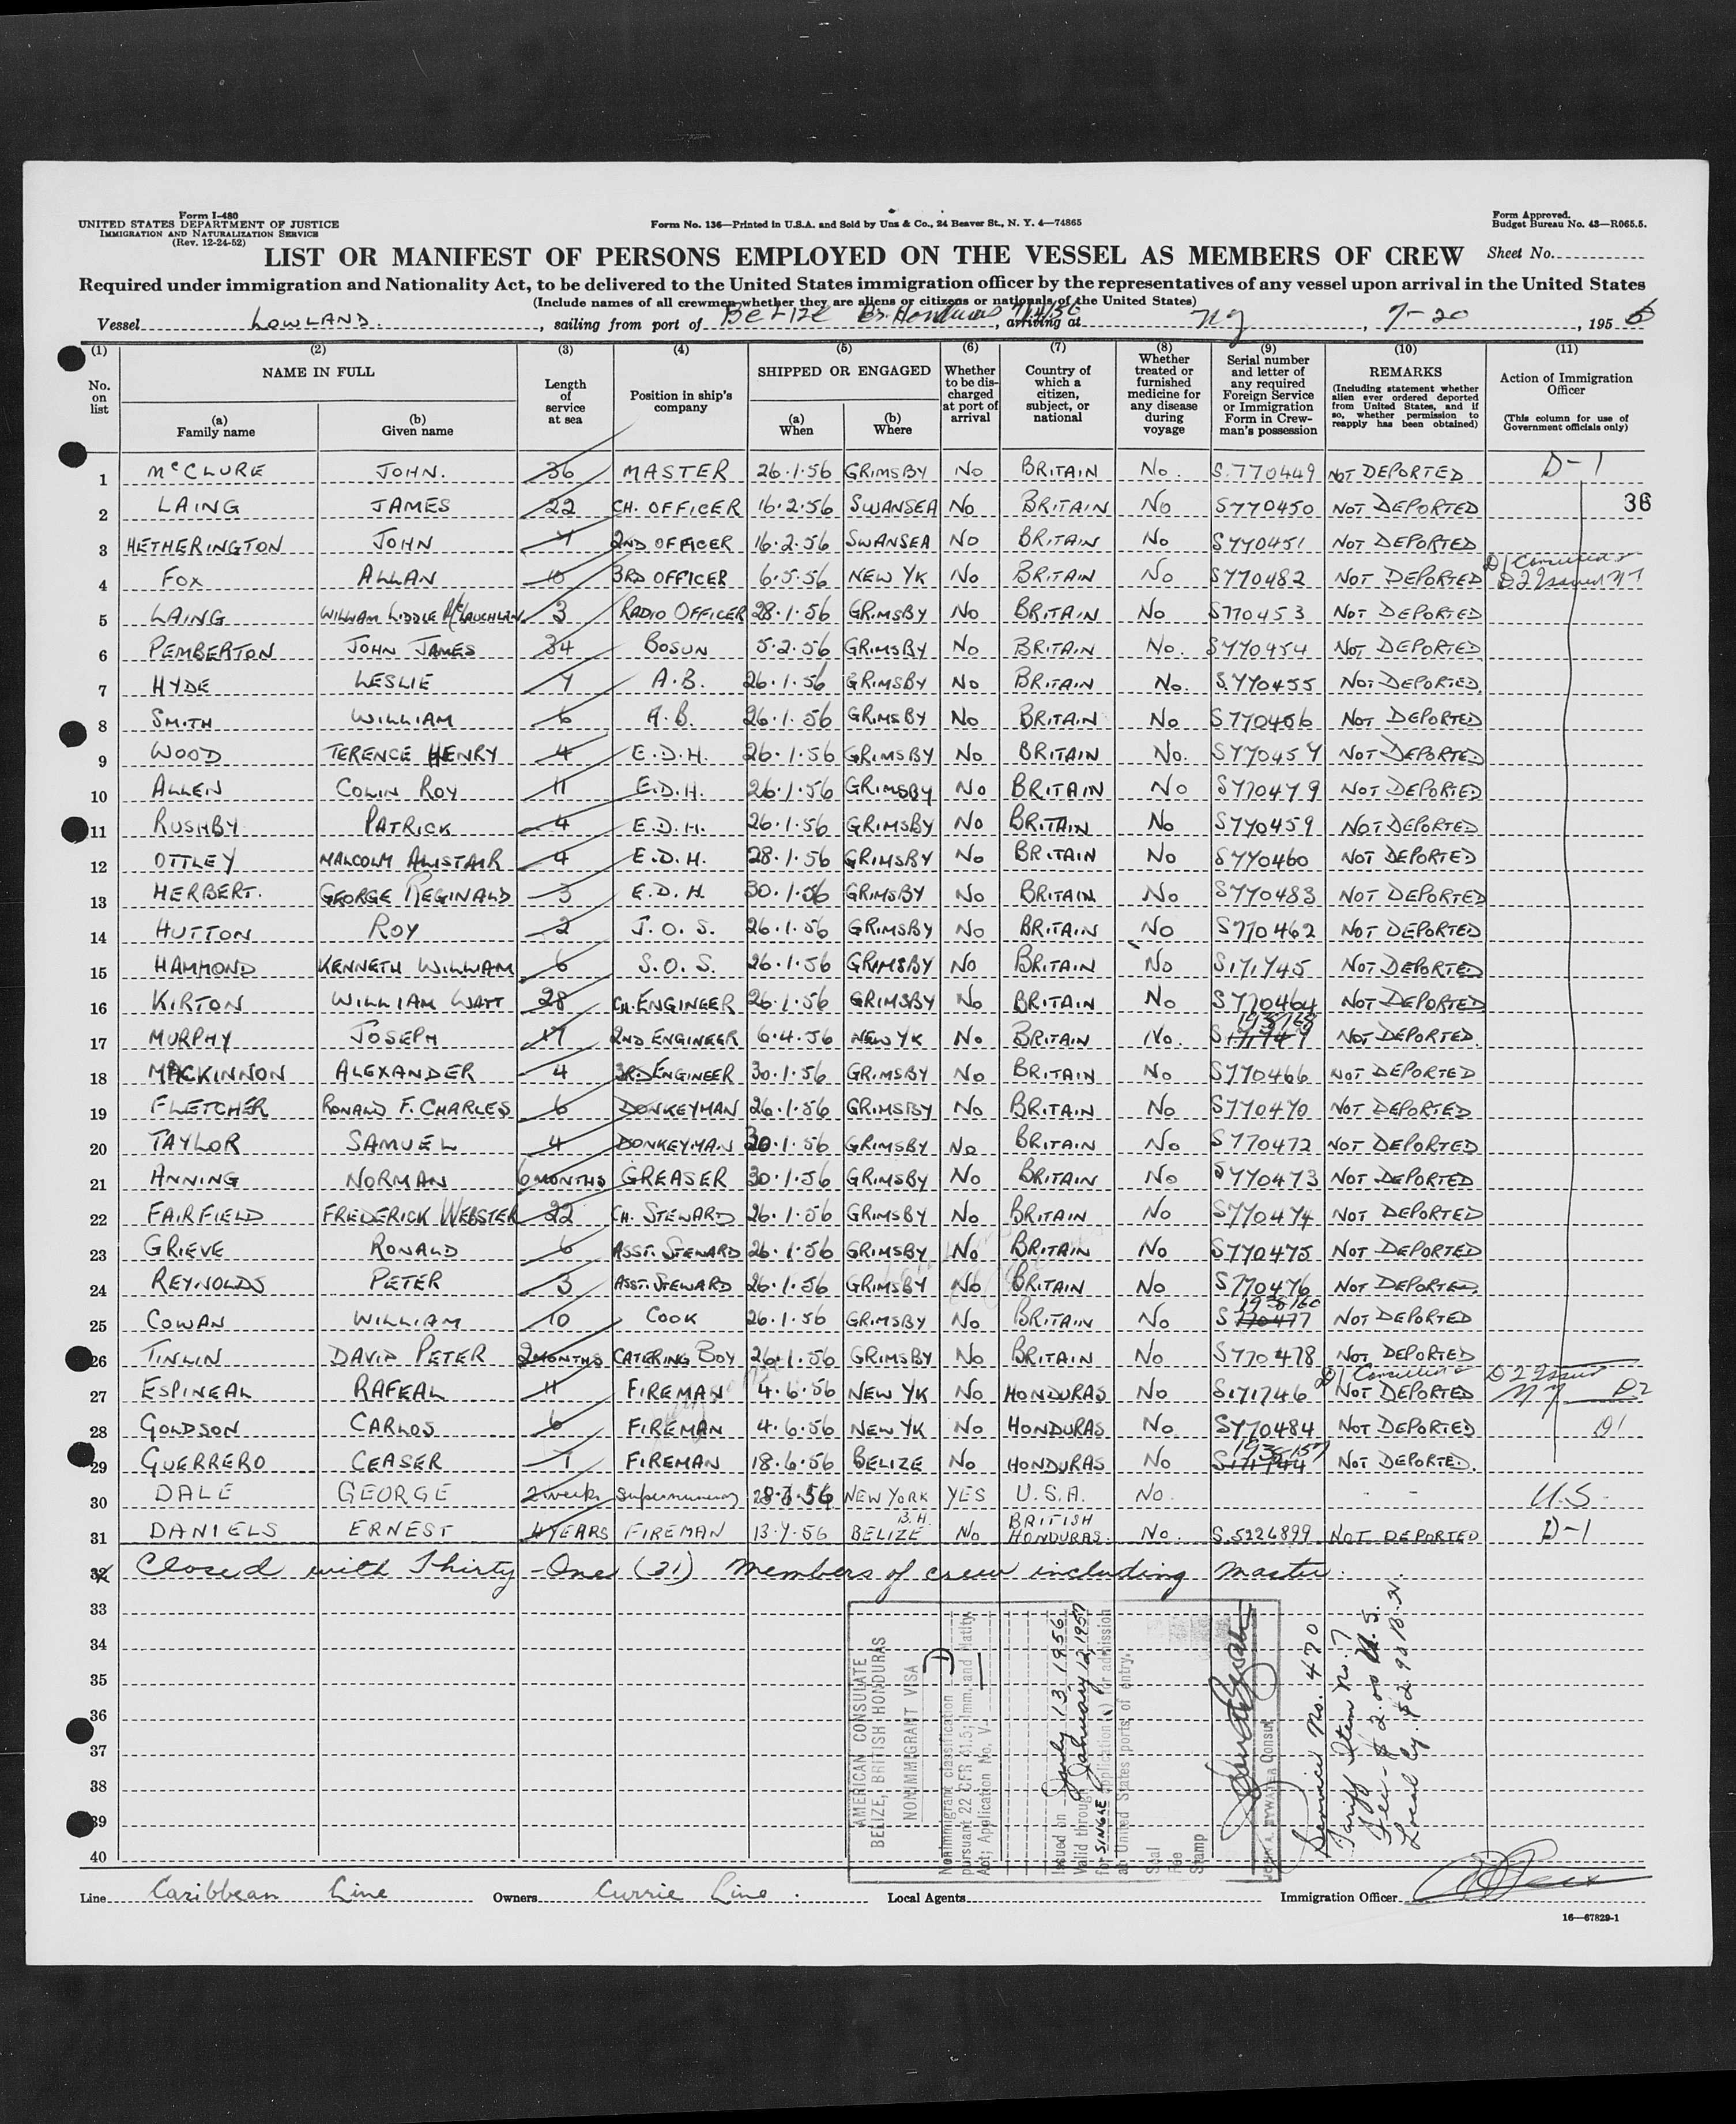 Form I-480
UNITED STATES DEPARTMENT OF JUSTICE
IMMIGRATION AND NATURALIZATION SERVICE
(Rev. 12-24-52)
Form No. 136—Printed in U.S.A. and Sold by Unz & Co., 24 Beaver St., N. Y. 4—74865
Form Approved.
Budget Bureau No. 43—R065.5.
LIST OR MANIFEST OF PERSONS EMPLOYED ON THE VESSEL AS MEMBERS OF CREW
Sheet No.
Required under immigration and Nationality Act, to be delivered to the United States immigration officer by the representatives of any vessel upon arrival in the United States
(Include names of all crewmen whether they are aliens or citizens or nationals of the United States)
Vessel LOWLAND. , sailing from port of BELIZE Br. Honduras 7/14/56 , arriving at NY , 7-20 , 1956
(1) (2) (3) (4) (5) (6) (7) (8) (9) (10) (11)
No. on list
NAME IN FULL
(a) Family name
(b) Given name
Length of service at sea
Position in ship's company
SHIPPED OR ENGAGED
(a) When
(b) Where
Whether to be discharged at port of arrival
Country of which a citizen, subject, or national
Whether treated or furnished medicine for any disease during voyage
Serial number and letter of any required Foreign Service or Immigration Form in Crewman's possession
REMARKS
(Including statement whether alien ever ordered deported from United States, and if so, whether permission to reapply has been obtained)
Action of Immigration Officer
(This column for use of Government officials only)
1 McCLURE JOHN. 36 MASTER 26.1.56 GRIMSBY No BRITAIN No. S.770449 NOT DEPORTED D-1
2 LAING JAMES 22 CH. OFFICER 16.2.56 SWANSEA No BRITAIN No S770450 NOT DEPORTED 36
3 HETHERINGTON JOHN 7 2ND OFFICER 16.2.56 SWANSEA No BRITAIN No S770451 NOT DEPORTED
4 FOX ALLAN 10 3RD OFFICER 6.5.56 NEW YK No BRITAIN No S770482 NOT DEPORTED D1 Cancelled D2 Issued NY
5 LAING WILLIAM LIDDLE McLAUCHLAN 3 RADIO OFFICER 28.1.56 GRIMSBY No BRITAIN No S770453 NOT DEPORTED
6 PEMBERTON JOHN JAMES 34 BOSUN 5.2.56 GRIMSBY No BRITAIN No. S770454 NOT DEPORTED
7 HYDE LESLIE 7 A.B. 26.1.56 GRIMSBY No BRITAIN No. S.770455 NOT DEPORTED.
8 SMITH WILLIAM 6 A.B. 26.1.56 GRIMSBY No BRITAIN No S770456 NOT DEPORTED
9 WOOD TERENCE HENRY 4 E.D.H. 26.1.56 GRIMSBY No BRITAIN No. S770457 NOT DEPORTED
10 ALLEN COLIN ROY 11 E.D.H. 26.1.56 GRIMSBY No BRITAIN No S770479 NOT DEPORTED
11 RUSHBY PATRICK 4 E.D.H. 26.1.56 GRIMSBY No BRITAIN No S770459 NOT DEPORTED
12 OTTLEY MALCOLM ALISTAIR 4 E.D.H. 28.1.56 GRIMSBY No BRITAIN No S770460 NOT DEPORTED
13 HERBERT. GEORGE REGINALD 3 E.D.H. 30.1.56 GRIMSBY No BRITAIN No S770483 NOT DEPORTED
14 HUTTON ROY 2 J.O.S. 26.1.56 GRIMSBY No BRITAIN No S770462 NOT DEPORTED
15 HAMMOND KENNETH WILLIAM 6 S.O.S. 26.1.56 GRIMSBY No BRITAIN No S171745 NOT DEPORTED
16 KIRTON WILLIAM WATT 28 CH. ENGINEER 26.1.56 GRIMSBY No BRITAIN No S770464 NOT DEPORTED
17 MURPHY JOSEPH 17 2ND ENGINEER 6.4.56 NEW YK No BRITAIN No. NOT DEPORTED.
18 MACKINNON ALEXANDER 4 3RD ENGINEER 30.1.56 GRIMSBY No BRITAIN No S770466 NOT DEPORTED
19 FLETCHER RONALD F. CHARLES 6 DONKEYMAN 26.1.56 GRIMSBY No BRITAIN No S770470 NOT DEPORTED
20 TAYLOR SAMUEL 4 DONKEYMAN 30.1.56 GRIMSBY No BRITAIN No S770472 NOT DEPORTED
21 ANNING NORMAN 6 MONTHS GREASER 30.1.56 GRIMSBY No BRITAIN No S770473 NOT DEPORTED
22 FAIRFIELD FREDERICK WEBSTER 22 CH. STEWARD 26.1.56 GRIMSBY No BRITAIN No S770474 NOT DEPORTED
23 GRIEVE RONALD 6 ASST. STEWARD 26.1.56 GRIMSBY No BRITAIN No S770475 NOT DEPORTED
24 REYNOLDS PETER 3 ASST. STEWARD 26.1.56 GRIMSBY No BRITAIN No S770476 NOT DEPORTED.
25 COWAN WILLIAM 10 COOK 26.1.56 GRIMSBY No BRITAIN No S 770477 NOT DEPORTED
26 TINLIN DAVID PETER 2 MONTHS CATERING BOY 26.1.56 GRIMSBY No BRITAIN No S770478 NOT DEPORTED
27 ESPINEAL RAFEAL 11 FIREMAN 4.6.56 NEW YK No HONDURAS No S171746 D1 Cancelled NOT DEPORTED D2 Issued NY D2
28 GOLDSON CARLOS 6 FIREMAN 4.6.56 NEW YK No HONDURAS No S770484 NOT DEPORTED D1
29 GUERRERO CEASER 7 FIREMAN 18.6.56 BELIZE No HONDURAS No NOT DEPORTED.
30 DALE GEORGE 2 weeks Supernumerary 28.3.56 NEW YORK YES U.S.A. No. - - U.S.
31 DANIELS ERNEST 4 YEARS FIREMAN 13.7.56 BELIZE B.H. No BRITISH HONDURAS. No. S.5226899 NOT DEPORTED D-1
32 Closed with Thirty-One (31) Members of crew including Master.
33
34
35
36
37
38
39
40
AMERICAN CONSULATE
BELIZE, BRITISH HONDURAS
NONIMMIGRANT VISA
Nonimmigrant classification D
pursuant 22 CFR 41.5; Imm. and Natlty.
Act; Application No. V-
Issued on July 13 1956
Valid through January 12, 1957
for SINGLE application(s) for admission
at United States ports of entry.
Seal
Fee
Stamp
Consul
Service No. 470
Tariff Item No. 7
Fee - $2.00 U.S.
Local Cy. $2.90 B.H.
Line Caribbean Line Owners Currie Line. Local Agents Immigration Officer
16—67829-1